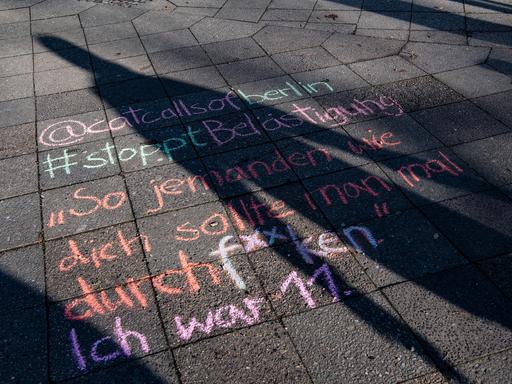 @catcallsofberlin
#stopptBelästigung
„So jemanden wie
dich sollte man mal
durchf**ken“
Ich war 11.